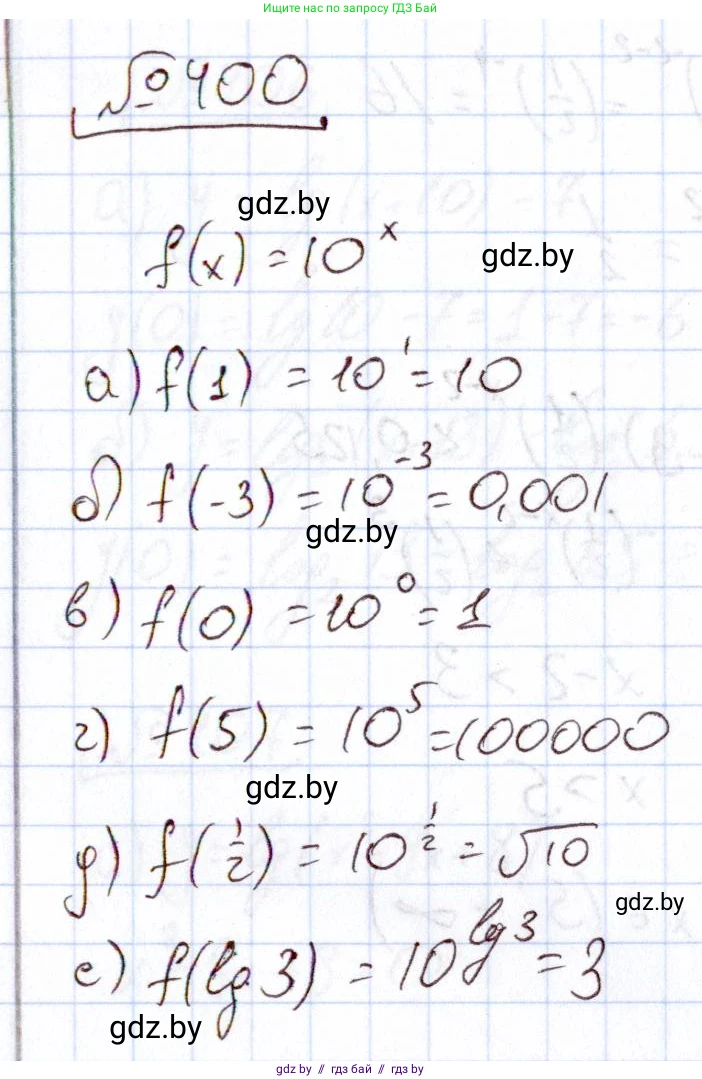 Ищите нас по запросу ГДЗ Бай
№ 400
gdz.by
f(x) = 10^x
gdz.by
а) f(1) = 10^1 = 10
б) f(-3) = 10^-3 = 0,001.
gdz.by
в) f(0) = 10^0 = 1
г) f(5) = 10^5 = 100000
gdz.by
д) f(1/2) = 10^1/2 = √10
gdz.by
е) f(lg 3) = 10^lg 3 = 3
gdz.by
gdz.by // гдз бай // гдз.by